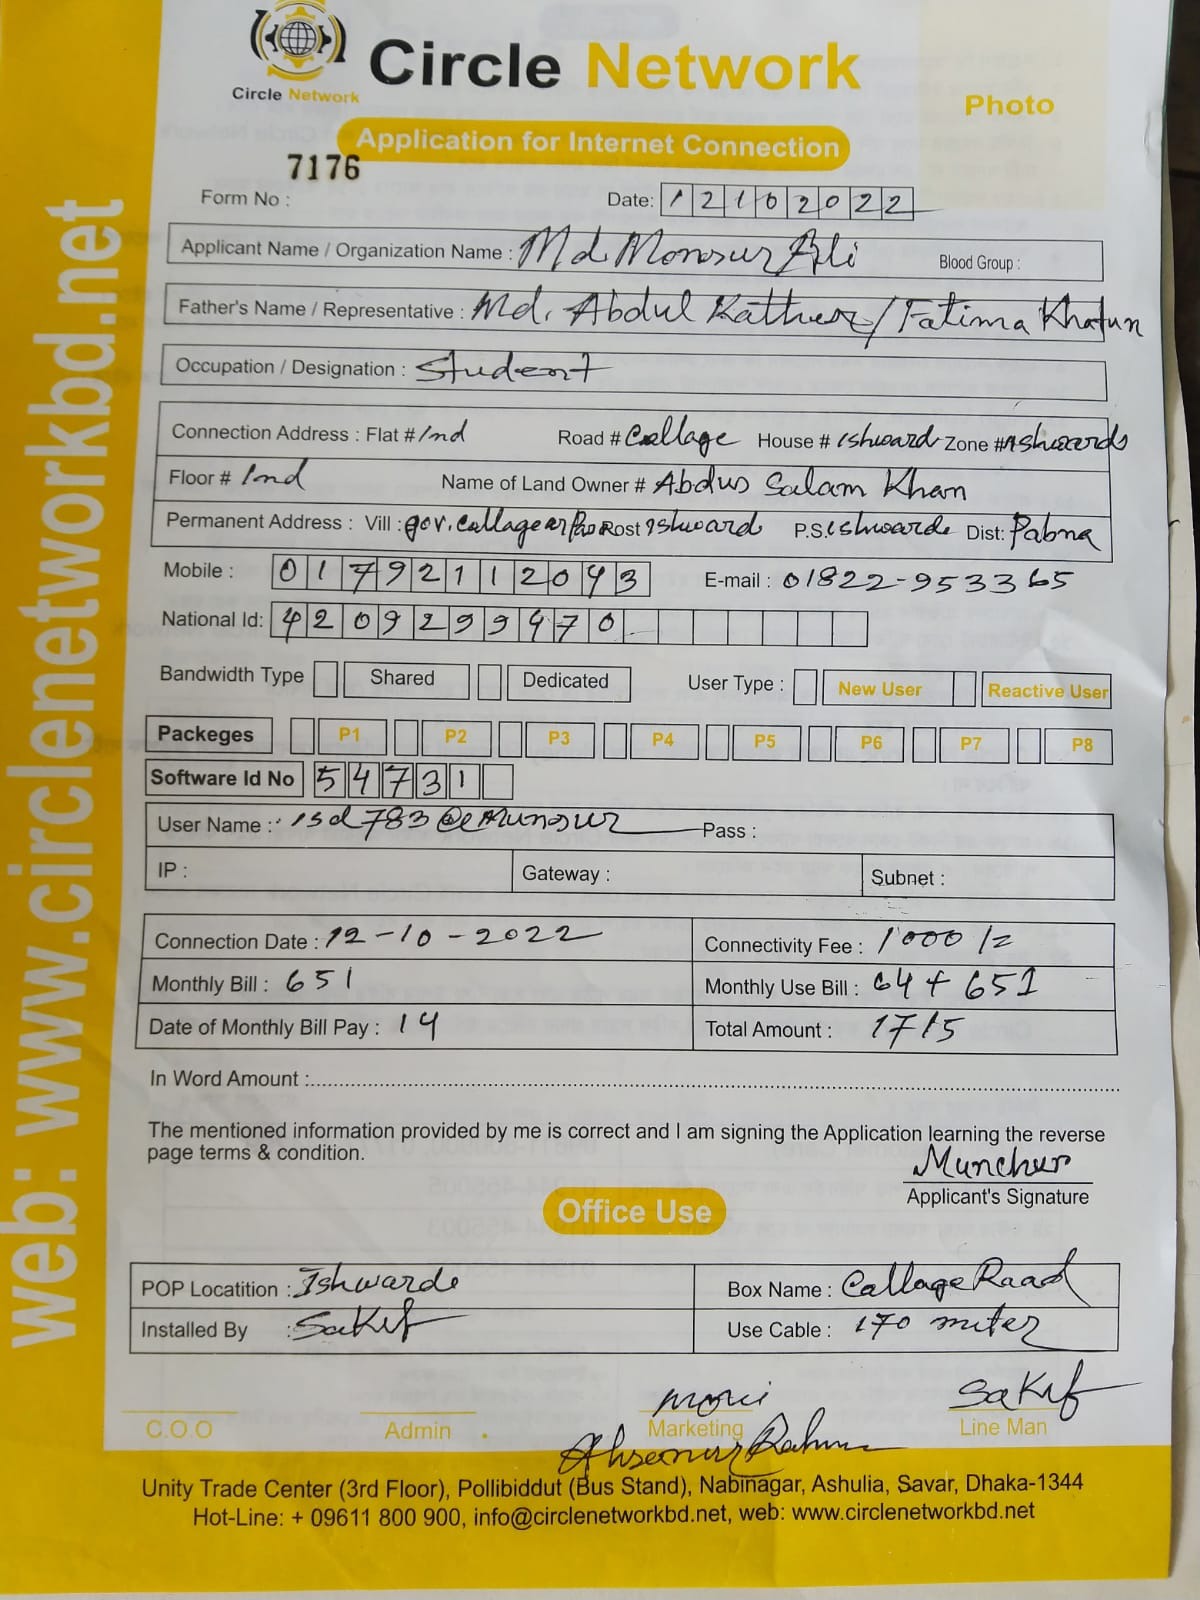 Circle Network
Circle Network
Photo
Application for Internet Connection
7176
Form No :
Date: 12102022
Applicant Name / Organization Name : Md. Monsur Ali Blood Group :
Father's Name / Representative : Md. Abdul Kathur / Fatima Khatun
Occupation / Designation : Student
Connection Address : Flat # 1nd Road # Collage House # ishward Zone # ishwards
Floor # 1nd Name of Land Owner # Abdus Salam Khan
Permanent Address : Vill : gov. collage Post ishward P.S. ishwarde Dist: Pabna
Mobile : 01792112043 E-mail : 01822-953365
National Id: 4209299470
Bandwidth Type Shared Dedicated User Type : New User Reactive User
Packeges P1 P2 P3 P4 P5 P6 P7 P8
Software Id No 54731
User Name : isd783@ Pass :
IP : Gateway : Subnet :
Connection Date : 12-10-2022 Connectivity Fee : 1000/=
Monthly Bill : 651 Monthly Use Bill : 64 + 651
Date of Monthly Bill Pay : 14 Total Amount : 1715
In Word Amount :
The mentioned information provided by me is correct and I am signing the Application learning the reverse
page terms & condition.
Munchur
Applicant's Signature
Office Use
POP Locatition : Ishwarde Box Name : Callage Raad
Installed By : Sakif Use Cable : 170 miter
Sakif
C.O.O Admin Marketing Line Man
Unity Trade Center (3rd Floor), Pollibiddut (Bus Stand), Nabinagar, Ashulia, Savar, Dhaka-1344
Hot-Line: + 09611 800 900, info@circlenetworkbd.net, web: www.circlenetworkbd.net
web: www.circlenetworkbd.net